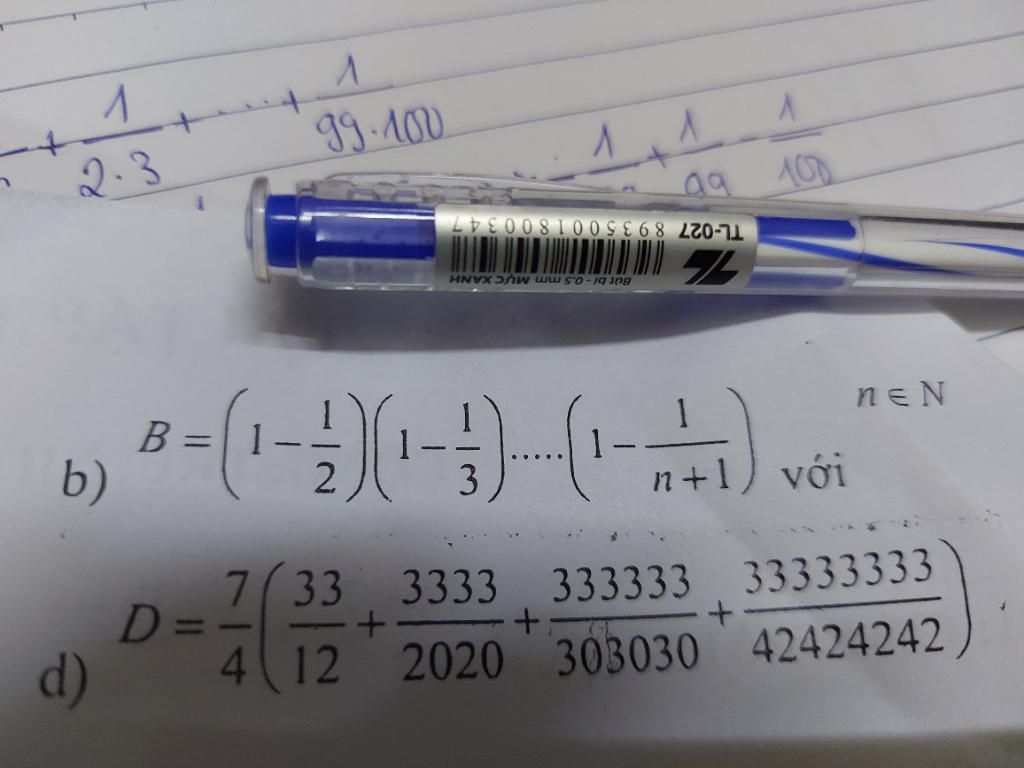 + 1/(2.3) + ..... + 1/(99.100)
.. 1/ + 1/99 - 1/100
TL-027
8935001800347
Bút bi - 0.5 mm MỰC XANH
b) B = (1 - 1/2)(1 - 1/3).....(1 - 1/(n+1)) với n ∈ N
d) D = 7/4 (33/12 + 3333/2020 + 333333/303030 + 33333333/42424242) .